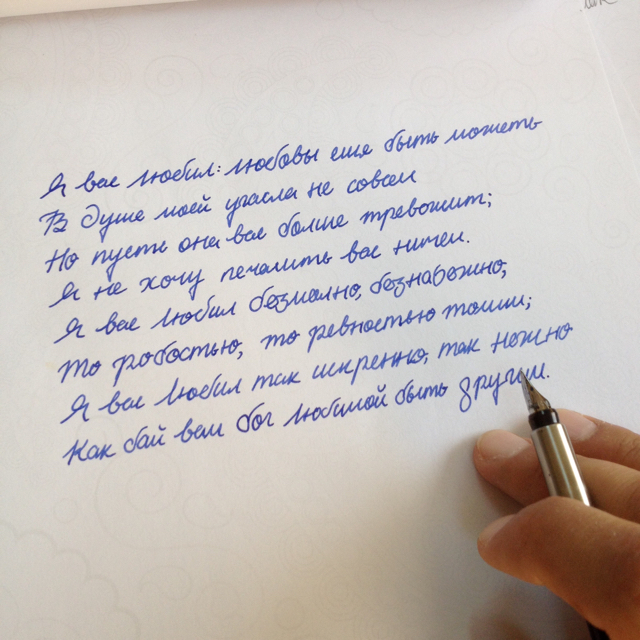 Я вас любил: любовы еше быть можеть
В душе моей угасла не совсем
Но пусть она вас болше тревожит;
Я не хочу печалить вас ничем.
Я вас любил безмолно, безнабежно,
То робостью, то ревностью томим;
Я вас любил так искренно, так нежно
Как бай вам бог любимой быть другим.